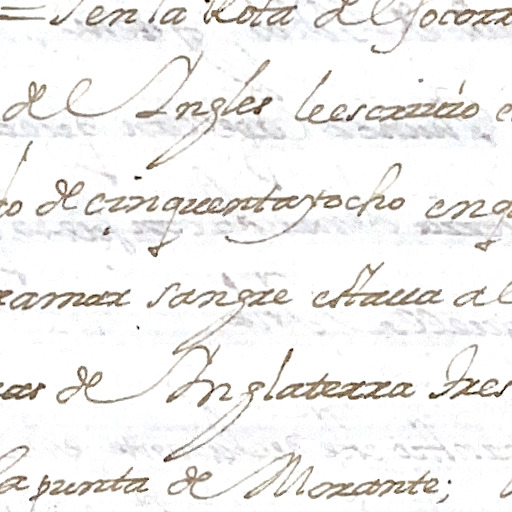 = Y en la Rota del Socorr
del Ingles le escriuio e
to de çinquenta y ocho en q
ramar sangre estaua al
cas de Inglaterra tres
la punta de Morante;